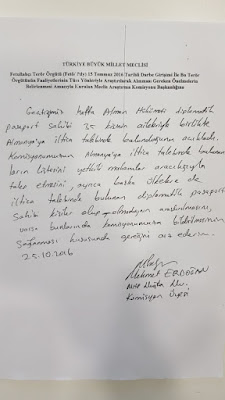 TÜRKİYE BÜYÜK MİLLET MECLİSİ
Fetullahçı Terör Örgütü (Fetö/ Pdy) 15 Temmuz 2016 Tarihli Darbe Girişimi İle Bu Terör
Örgütünün Faaliyetlerinin Tüm Yönleriyle Araştırılarak Alınması Gereken Önlemlerin
Belirlenmesi Amacıyla Kurulan Meclis Araştırma Komisyonu Başkanlığına
Geçtiğimiz hafta Alman Hükümeti diplomatik
pasaport sahibi 35 kişinin aileleriyle birlikte
Almanya'ya iltica talebinde bulunduğunu açıkladı.
Komisyonumuzun Almanya'ya iltica talebinde bulunan-
ların listesini yetkili makamlar aracılığıyla
talep etmesini, ayrıca başka ülkelere de
iltica talebinde bulunan diplomatik pasaport
sahibi kişiler olup olmadığının araştırılmasını,
varsa bunlarında komisyonumuza bildirilmesinin
sağlanması hususunda gereğini arz ederim.
25.10.2016
Mehmet ERDOĞAN
MHP Muğla Mv.
Komisyon Üyesi